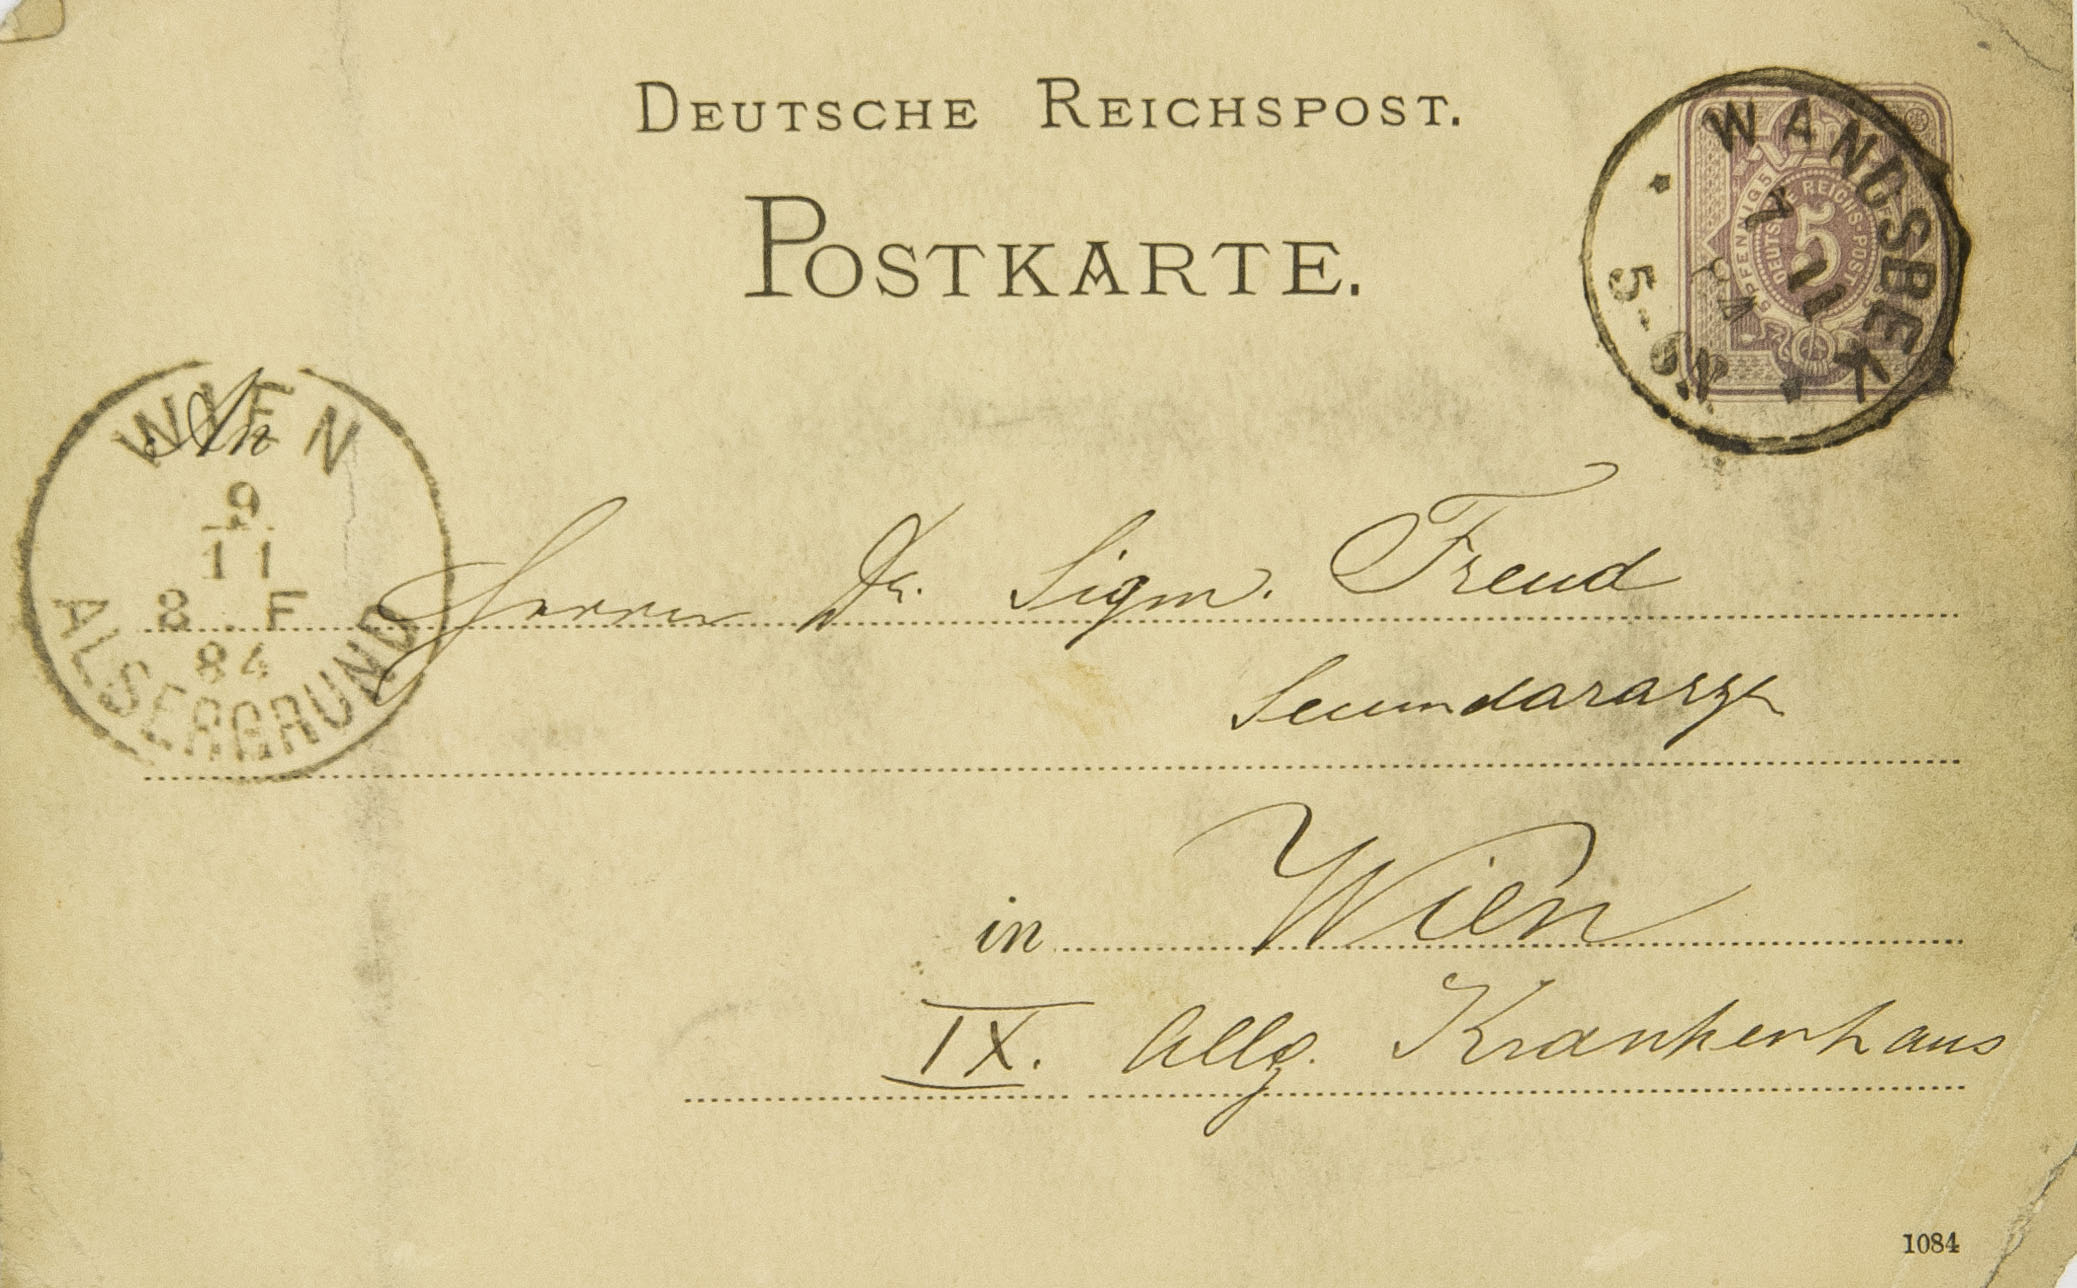 DEUTSCHE REICHSPOST.
POSTKARTE.
WANDSBEK
7 11
84
5-6N.
5 PFENNIG 5
DEUTSCHE REICHS-POST
5
WIEN
9
11
8. F
84
ALSERGRUND
An
Herrn Dr. Sigm. Freud
Secundararzt
in Wien
IX. Allg. Krankenhaus
1084